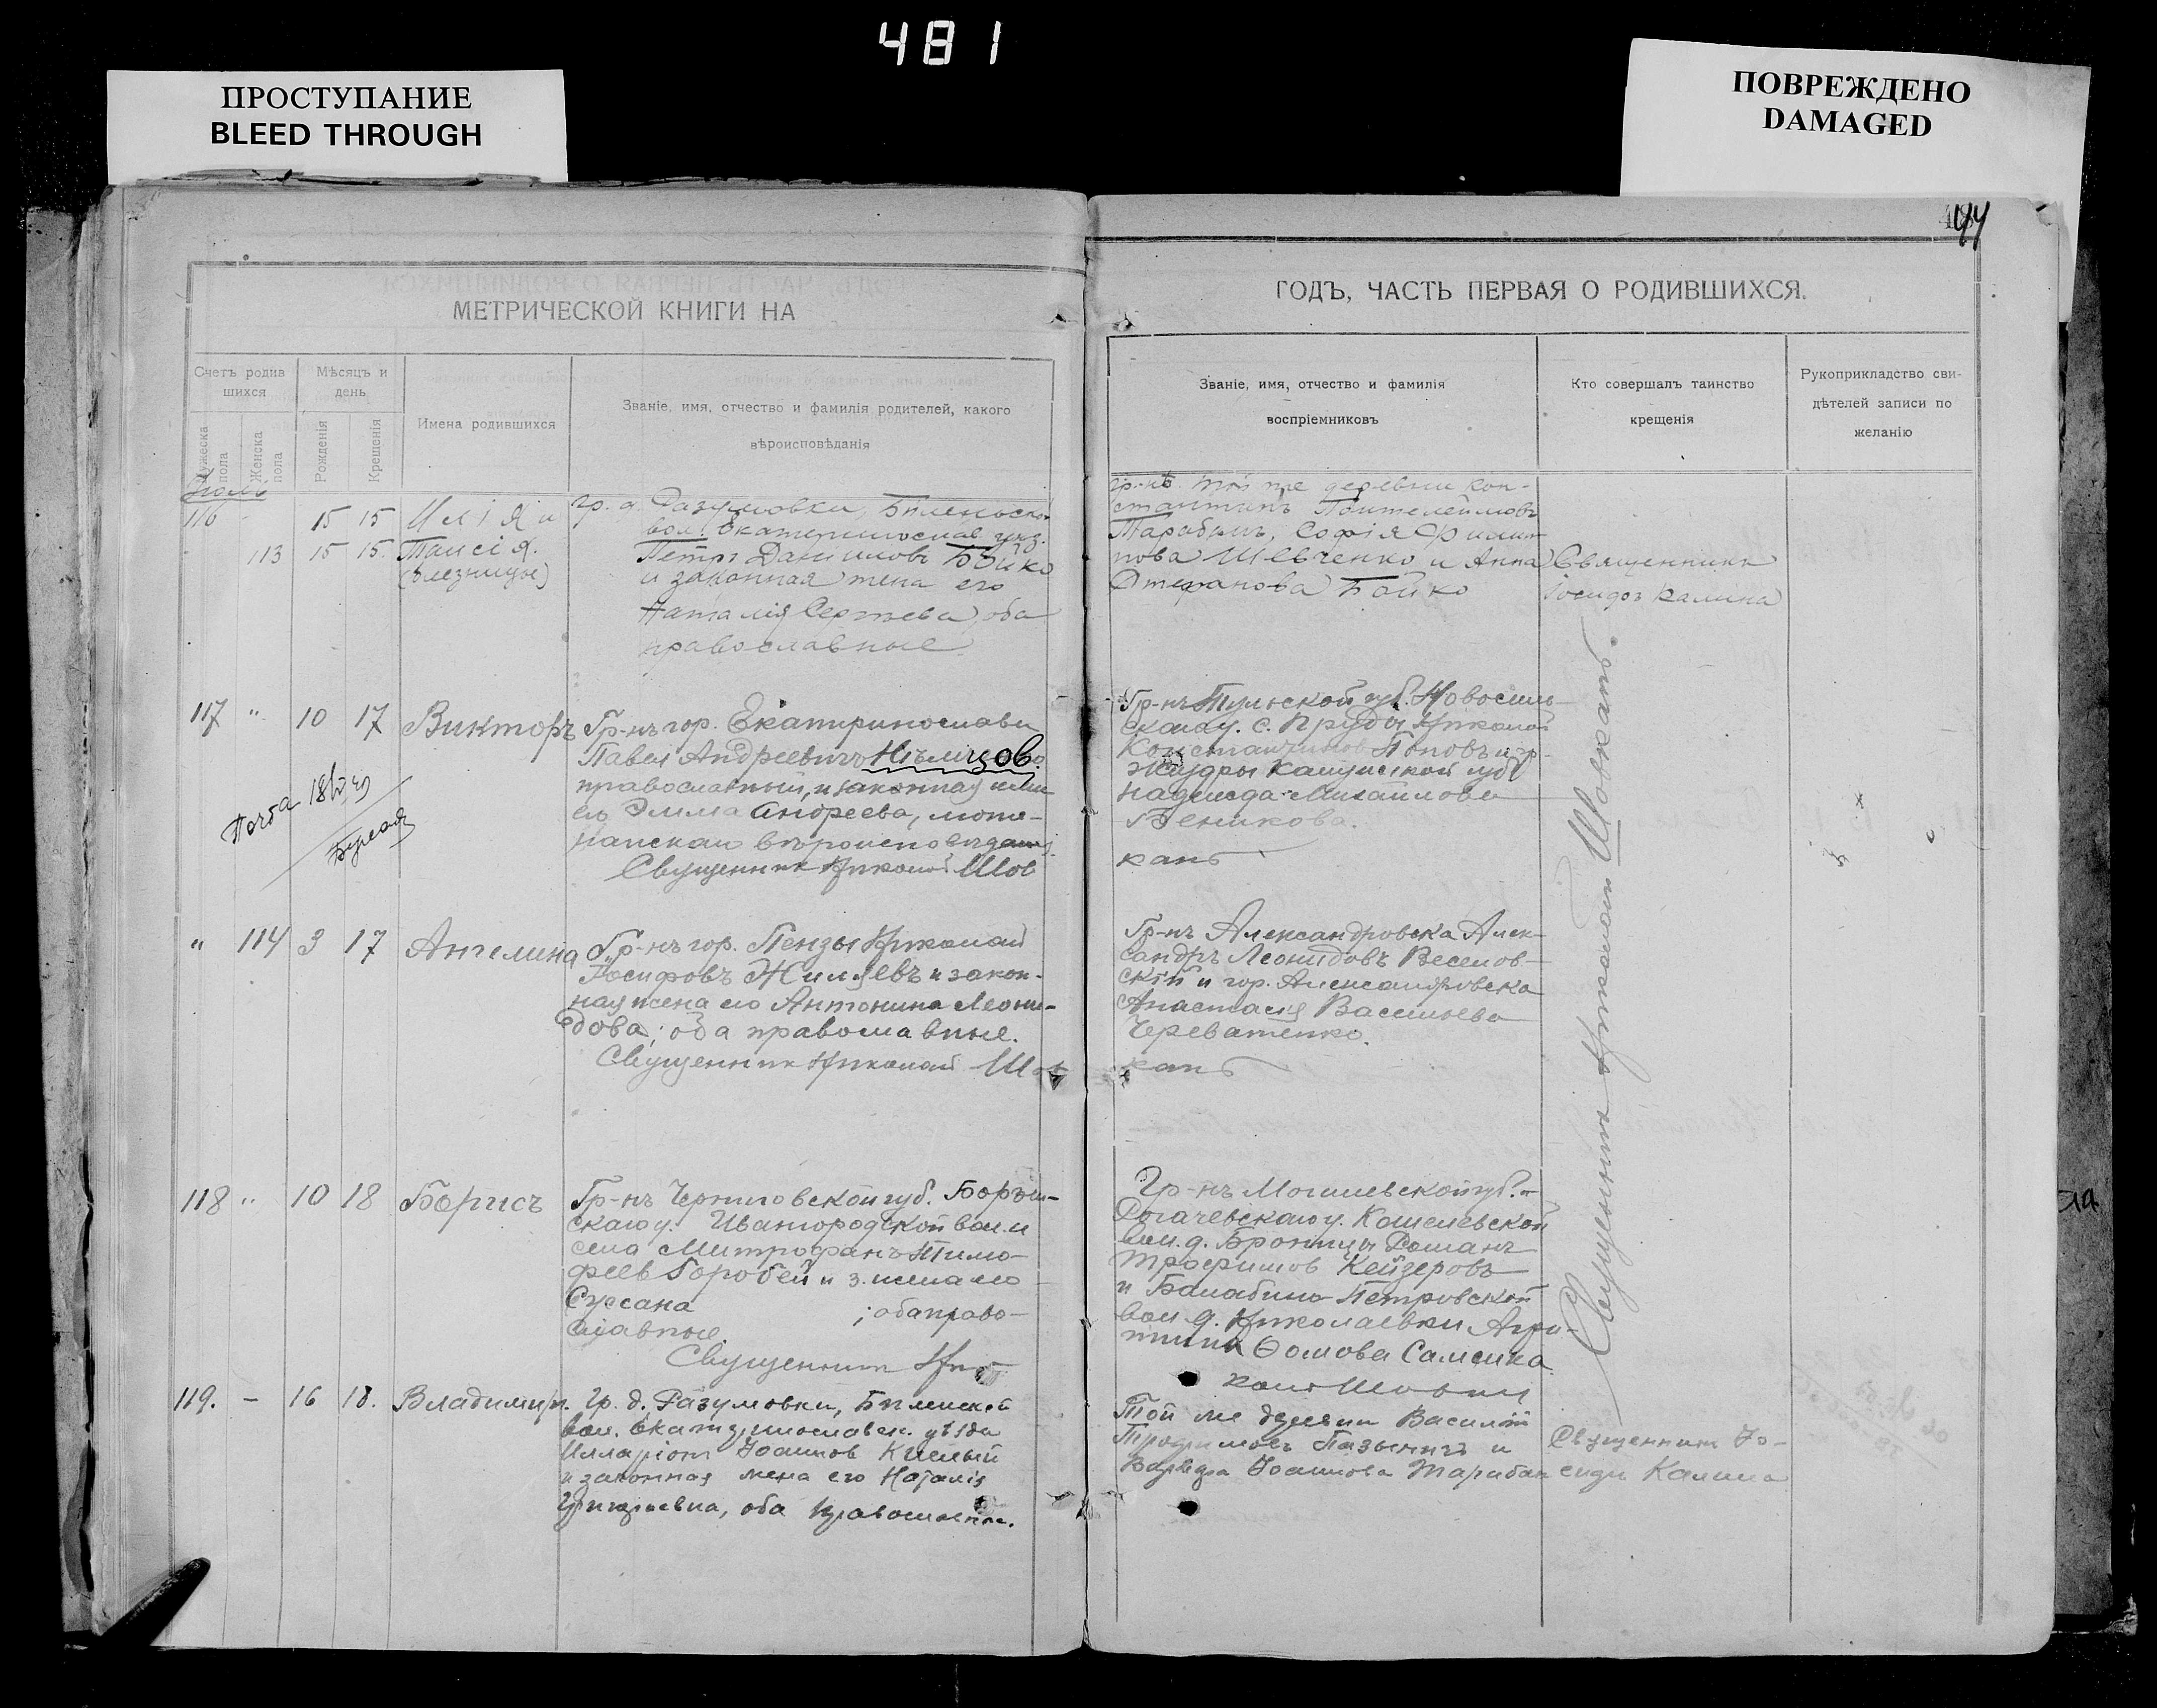 481
ПРОСТУПАНИЕ
BLEED THROUGH
ПОВРЕЖДЕНО
DAMAGED
МЕТРИЧЕСКОЙ КНИГИ НА
Счетъ родив
шихся
Мѣсяцъ и
день
Мужеска
пола
Женска
пола
Рожденія
Крещенія
Имена родившихся
Званіе, имя, отчество и фамилія родителей, какого
вѣроисповѣданія
116
15 15
113 15 15 Таисія
(близнецы)
гр. д. Разумовки, Биленьской
вол. Екатеринослав. уѣз.
Петръ Даниловъ Бойко
и законная жена его
Наталія Сергѣева, оба
православные
117 " 10 17 Викторъ
Гр-нъ гор. Екатеринослава
Павел Андреевичъ Нѣмцов
православный, и законная жена
его Эмма Андреева, люте-
ранскаго вѣроисповѣдания
Священник Николай Шов
" 114 3 17 Ангелина
Гр-нъ гор. Пензы Николай
Іосифовъ Жиляевъ и закон-
ная жена его Антонина Леони-
дова; оба православные.
Священник Николай Шов
118 " 10 18 Борисъ
Гр-нъ Черниговской губ. Борзен-
скаго у. Ивангородской вол. и
села Митрофанъ Тимо-
феев Горобей и з. жена его
Сусана ; оба право-
славные.
Священник Ник
119. – 16 18. Владимиръ.
Гр. д. Разумовки, Биленской
вол. Екатеринославск. уѣзда
Илларіон Іоаннов
и законная жена его Наталія
Григорьевна, оба православные.
ГОДЪ, ЧАСТЬ ПЕРВАЯ О РОДИВШИХСЯ.
Званіе, имя, отчество и фамилія
воспріемниковъ
Кто совершалъ таинство
крещенія
Рукоприкладство сви-
дѣтелей записи по
желанію
гр-нѣ той же деревни Кон-
стантинъ Пантелеймовъ
Тарабанъ, Софія Филип-
пова Шевченко и Анна
Стефанова Бойко
Священникъ
Іосифъ Калина
Гр-нъ Тульской губ. Новосиль-
скаго у. с. Пруды Николай
Константинов Поповъ и гр.
Жиздры Калужской губ
Надежда Михайлова
канъ
Гр-нъ Александровска Алек-
сандръ Леонидовъ Веселов-
скій и гор. Александровска
Анастасія Васильева
Череватенко.
канъ
Гр-нъ Могилевской губ.
Рогачевскаго у. Кошелевской
вол. д. Роман
Трофимов Кейзеровъ
и Балабино-Петровской
вол. д. Николаевки Агри-
пина Ѳомова
Священникъ Николай Шовканъ.
Той же деревни Василій
Трофимовъ и
Іоаннова Тарабан
Священник Іо-
сифъ Калина